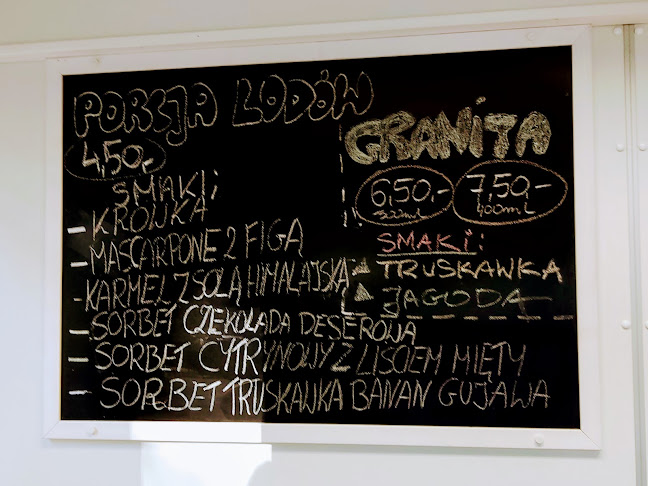 PORCJA LODÓW
4,50,-
SMAKI:
- KRÓWKA
- MASCARPONE Z FIGĄ
- KARMEL Z SOLĄ HIMALAJSKĄ
- SORBET CZEKOLADA DESEROWA
- SORBET CYTRYNOWY Z LISCIEM MIĘTY
- SORBET TRUSKAWKA BANAN GUJAWA
GRANITA
6,50,- 7,50,-
400ml
SMAKI:
TRUSKAWKA
JAGODA